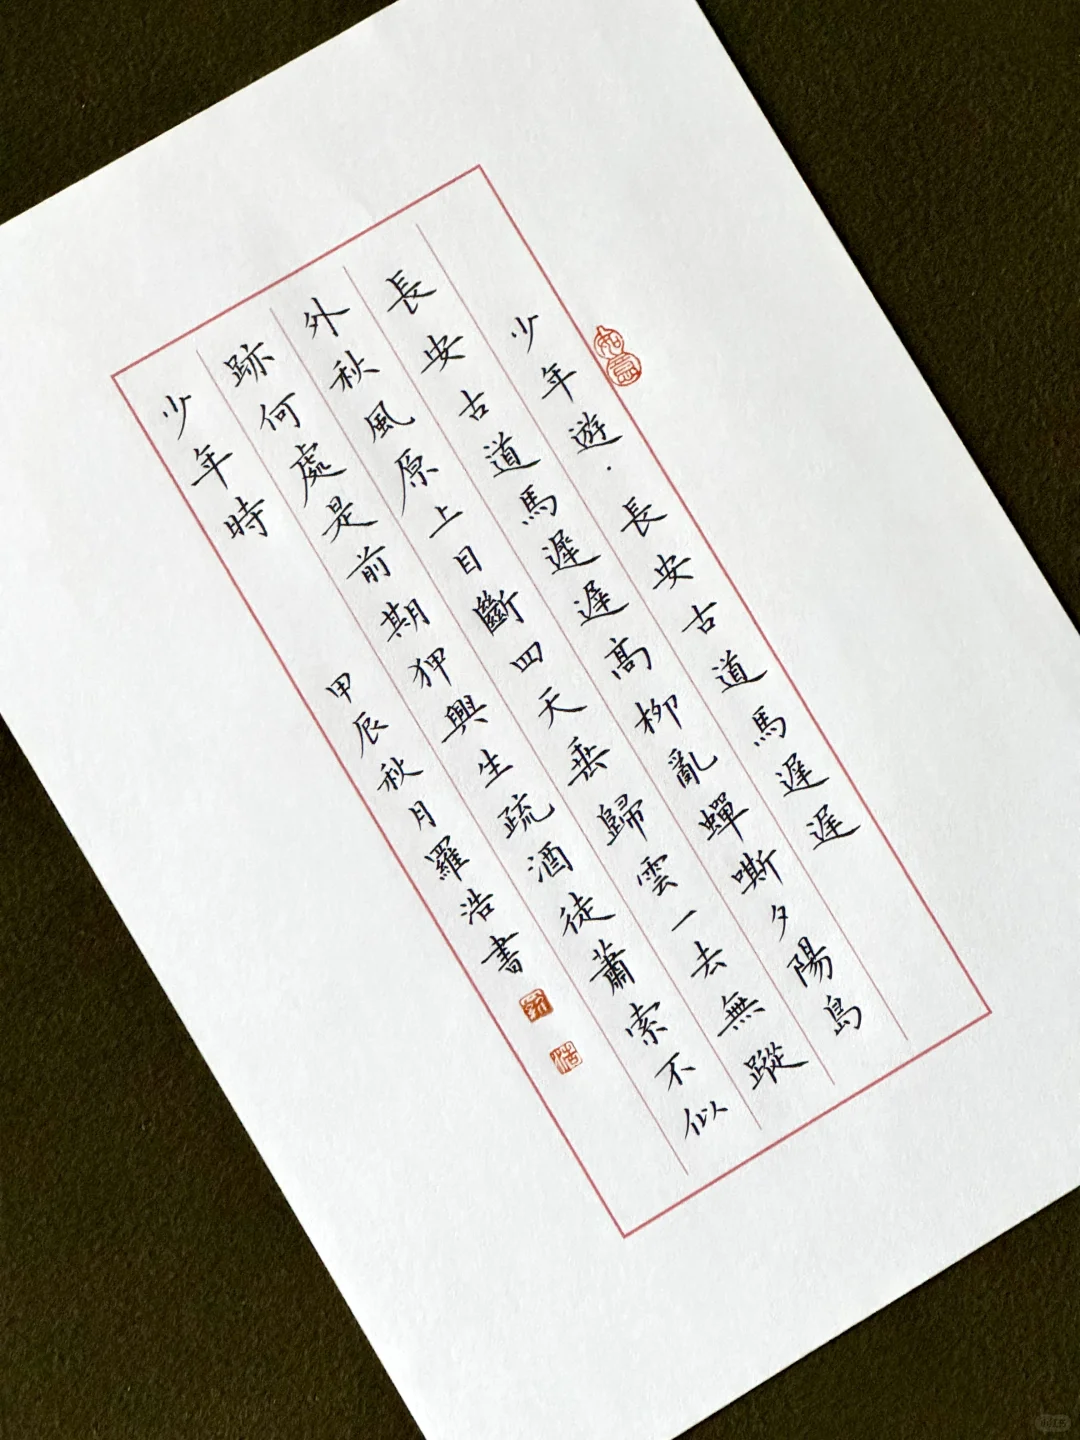 如意
少年遊·長安古道馬遲遲
長安古道馬遲遲高柳亂蟬嘶夕陽島
外秋風原上目斷四天垂歸雲一去無蹤
跡何處是前期狎興生疏酒徒蕭索不似
少年時 甲辰秋月羅浩書
浩